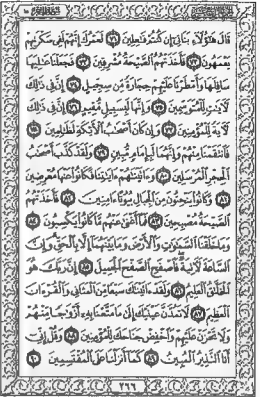 قَالَ هَٰٓؤُلَآءِ بَنَاتِيٓ إِن كُنتُمْ فَٰعِلِينَ ٧١ لَعَمْرُكَ إِنَّهُمْ لَفِي سَكْرَتِهِمْ
يَعْمَهُونَ ٧٢ فَأَخَذَتْهُمُ ٱلصَّيْحَةُ مُشْرِقِينَ ٧٣ فَجَعَلْنَا عَٰلِيَهَا
سَافِلَهَا وَأَمْطَرْنَا عَلَيْهِمْ حِجَارَةً مِّن سِجِّيلٍ ٧٤ إِنَّ فِي ذَٰلِكَ
لَءَايَٰتٍ لِّلْمُتَوَسِّمِينَ ٧٥ وَإِنَّهَا لَبِسَبِيلٍ مُّقِيمٍ ٧٦ إِنَّ فِي ذَٰلِكَ
لَءَايَةً لِّلْمُؤْمِنِينَ ٧٧ وَإِن كَانَ أَصْحَٰبُ ٱلْأَيْكَةِ لَظَٰلِمِينَ ٧٨
فَٱنتَقَمْنَا مِنْهُمْ وَإِنَّهُمَا لَبِإِمَامٍ مُّبِينٍ ٧٩ وَلَقَدْ كَذَّبَ أَصْحَٰبُ
ٱلْحِجْرِ ٱلْمُرْسَلِينَ ٨٠ وَءَاتَيْنَٰهُمْ ءَايَٰتِنَا فَكَانُوا۟ عَنْهَا مُعْرِضِينَ
٨١ وَكَانُوا۟ يَنْحِتُونَ مِنَ ٱلْجِبَالِ بُيُوتًا ءَامِنِينَ ٨٢ فَأَخَذَتْهُمُ
ٱلصَّيْحَةُ مُصْبِحِينَ ٨٣ فَمَآ أَغْنَىٰ عَنْهُم مَّا كَانُوا۟ يَكْسِبُونَ ٨٤
وَمَا خَلَقْنَا ٱلسَّمَٰوَٰتِ وَٱلْأَرْضَ وَمَا بَيْنَهُمَآ إِلَّا بِٱلْحَقِّ وَإِنَّ
ٱلسَّاعَةَ لَءَاتِيَةٌ فَٱصْفَحِ ٱلصَّفْحَ ٱلْجَمِيلَ ٨٥ إِنَّ رَبَّكَ هُوَ
ٱلْخَلَّٰقُ ٱلْعَلِيمُ ٨٦ وَلَقَدْ ءَاتَيْنَٰكَ سَبْعًا مِّنَ ٱلْمَثَانِي وَٱلْقُرْءَانَ
ٱلْعَظِيمَ ٨٧ لَا تَمُدَّنَّ عَيْنَيْكَ إِلَىٰ مَا مَتَّعْنَا بِهِۦٓ أَزْوَٰجًا مِّنْهُمْ
وَلَا تَحْزَنْ عَلَيْهِمْ وَٱخْفِضْ جَنَاحَكَ لِلْمُؤْمِنِينَ ٨٨ وَقُلْ إِنِّيٓ
أَنَا ٱلنَّذِيرُ ٱلْمُبِينُ ٨٩ كَمَآ أَنزَلْنَا عَلَى ٱلْمُقْتَسِمِينَ ٩٠
٢٦٦